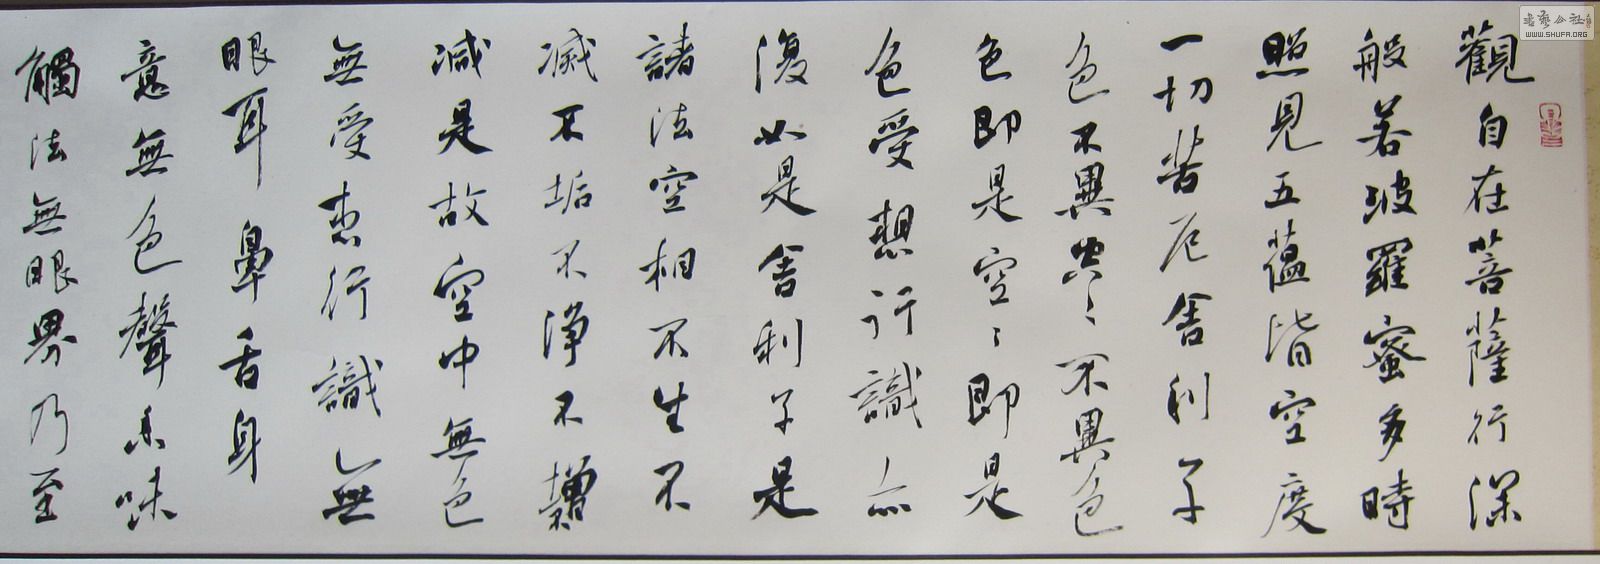 觀自在菩薩行深
般若波羅蜜多時
照見五蘊皆空度
一切苦厄舍利子
色不異空〻不異色
色即是空〻即是
色受想行識亦
復如是舍利子是
諸法空相不生不
滅不垢不淨不增
減是故空中無色
無受想行識無
眼耳鼻舌身
意無色聲香味
觸法無眼界乃至
WWW.SHUFA.ORG